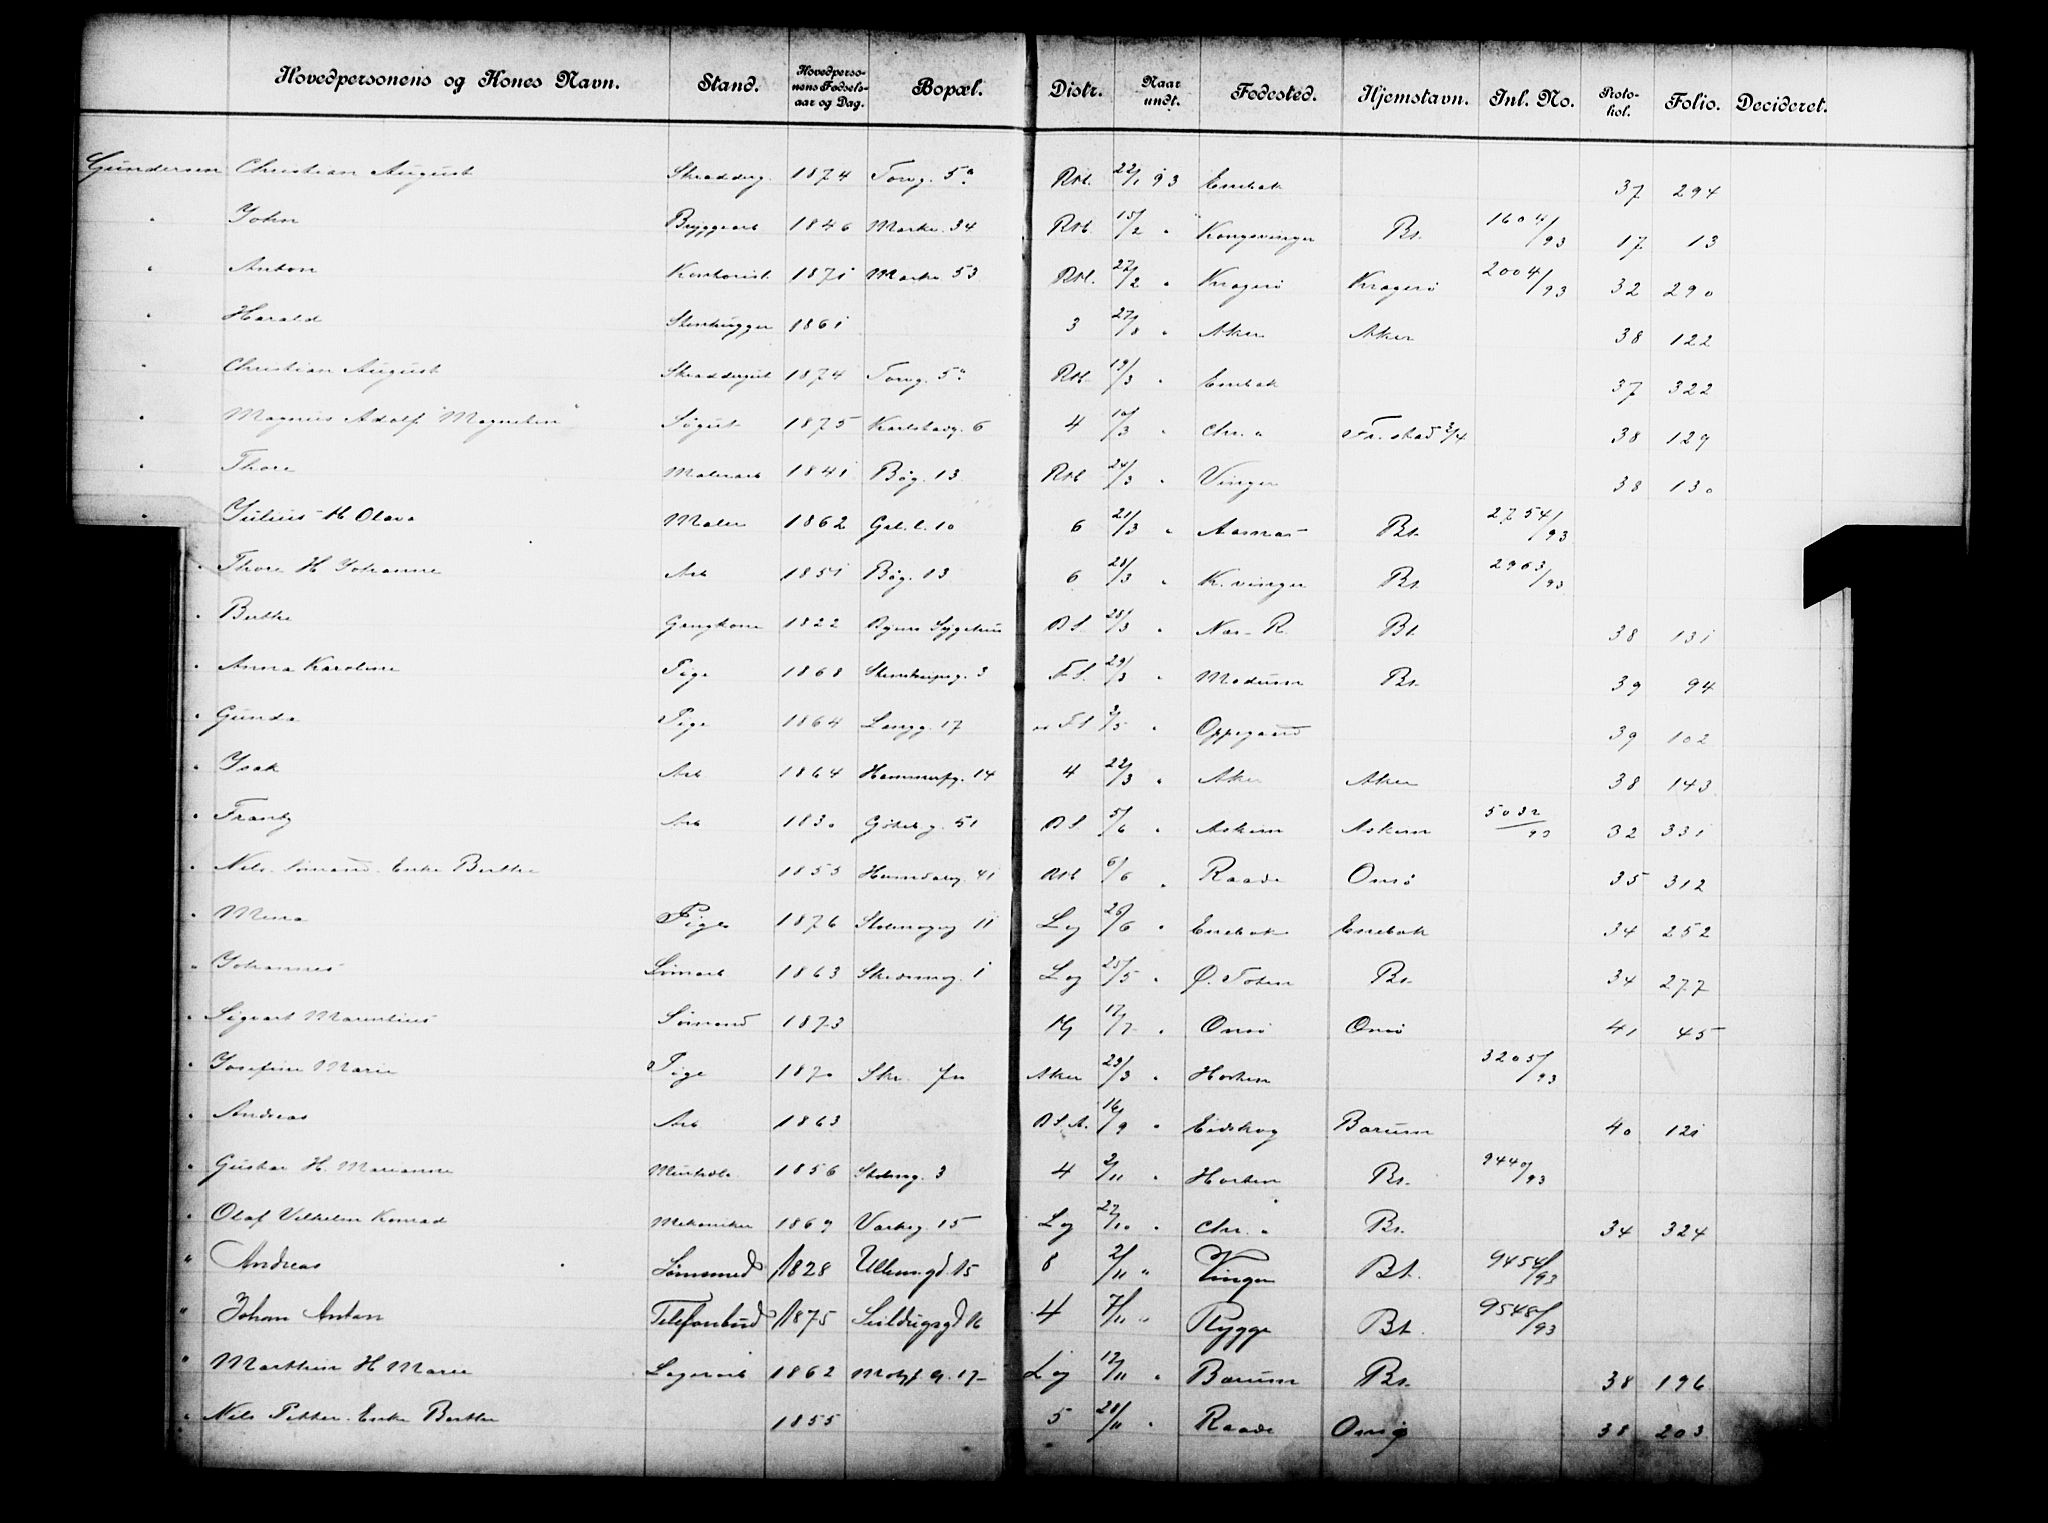 Hovedpersonens og Kones Navn. Stand. Hovedpersonens Fødselsaar og Dag. Bopæl. Distr. Naar undt. Fødested. Hjemstavn. Inl. No. Protokol. Folio. Decideret.
Gundersen Christian August Skrædderg. 1874 Torvg. 5a Rst. 22/1 93 Enebak 37 294
" John Bryggearb 1846 Markv. 34 Rst. 15/2 " Kongsvinger Bt. 1604/93 17 13
" Anton Kontorist 1871 Markv. 53 Rst. 27/2 " Kragerø Kragerø 2004/93 32 290
" Harald Stenhugger 1861 3 27/8 " Aker Aker 38 122
" Christian August Skræddergut 1874 Torvg. 5a Rst. 19/3 " Enebak 37 322
" Magnus Adolf "Magnetin" Søgut 1875 Karlstadg. 6 4 10/3 " Chr.a Fr.stad 3/4 38 129
" Thore Malerarb 1841 Bøg. 13 Rst 24/3 " Vinger 38 130
" Julius H Olava Maler 1862 Grl.l. 10 6 21/3 " Aasnæs Bt. 2754/93
" Thore H Johanne Arb 1851 Bøg. 13 6 28/3 " K.vinger Bt. 2963/93
" Berthe Gangkone 1822 Byens Sygehus B S. 28/3 " Næs - R. Bt. 38 131
" Anna Karoline Pige 1868 Stenstrupsg. 3 F S. 29/3 " Modum Bt. 39 94
" Gunda Pige 1864 Langg. 17 F S 3/5 " Oppegaard 39 102
" Isak Arb 1864 Hammerfg. 14 4 22/3 " Aker Aker 38 143
" Frantz Arb 1830 Gøteb g. 51 B S 5/6 " Askim Askim 5032/93 32 331
" Nils. Sømand. Enke Berthe 1855 Hemsdalsg. 41 Rst 6/6 " Raade Onsø 35 312
" Mina Pige 1876 Stolmagerg 11 Lg 26/6 " Enebak Enebak 34 252
" Johannes Sømarb 1863 Skedsmog. 1 Lg 25/5 " Ø. Toten Bt. 34 277
" Sigvart Marentius Sømand 1873 Mg 17/7 " Onsø Onsø 41 45
" Josefine Marie Pige 1870 Aker 23/3 " Horten 3205/93
" Andreas Arb 1863 B S A. 16/9 " Eidskog Bærum 40 121
" Gustav H. Marianne 1856 Stolmg. 3 4 2/11 " Horten Bt. 9440/93
" Olaf Vilhelm Konrad Mekaniker 1869 Verksg. 15 Lg 27/10 " Chr.a Bt. 34 324
" Andreas Tømmermd 1828 Ullensgd. 15 8 2/11 " Vinger Bt. 9454/93
" Johan Anton Telefonbud 1875 Seildugsgd 16 4 7/11 " Rygge Bt 9548/93
" Marthin H Marie Lagerarb 1862 Motzf. g. 17 Lg 17/11 " Bærum Bt. 38 196
" Nils Petter. Enke Berthe 1855 5 28/11 " Raade Onsø 38 203